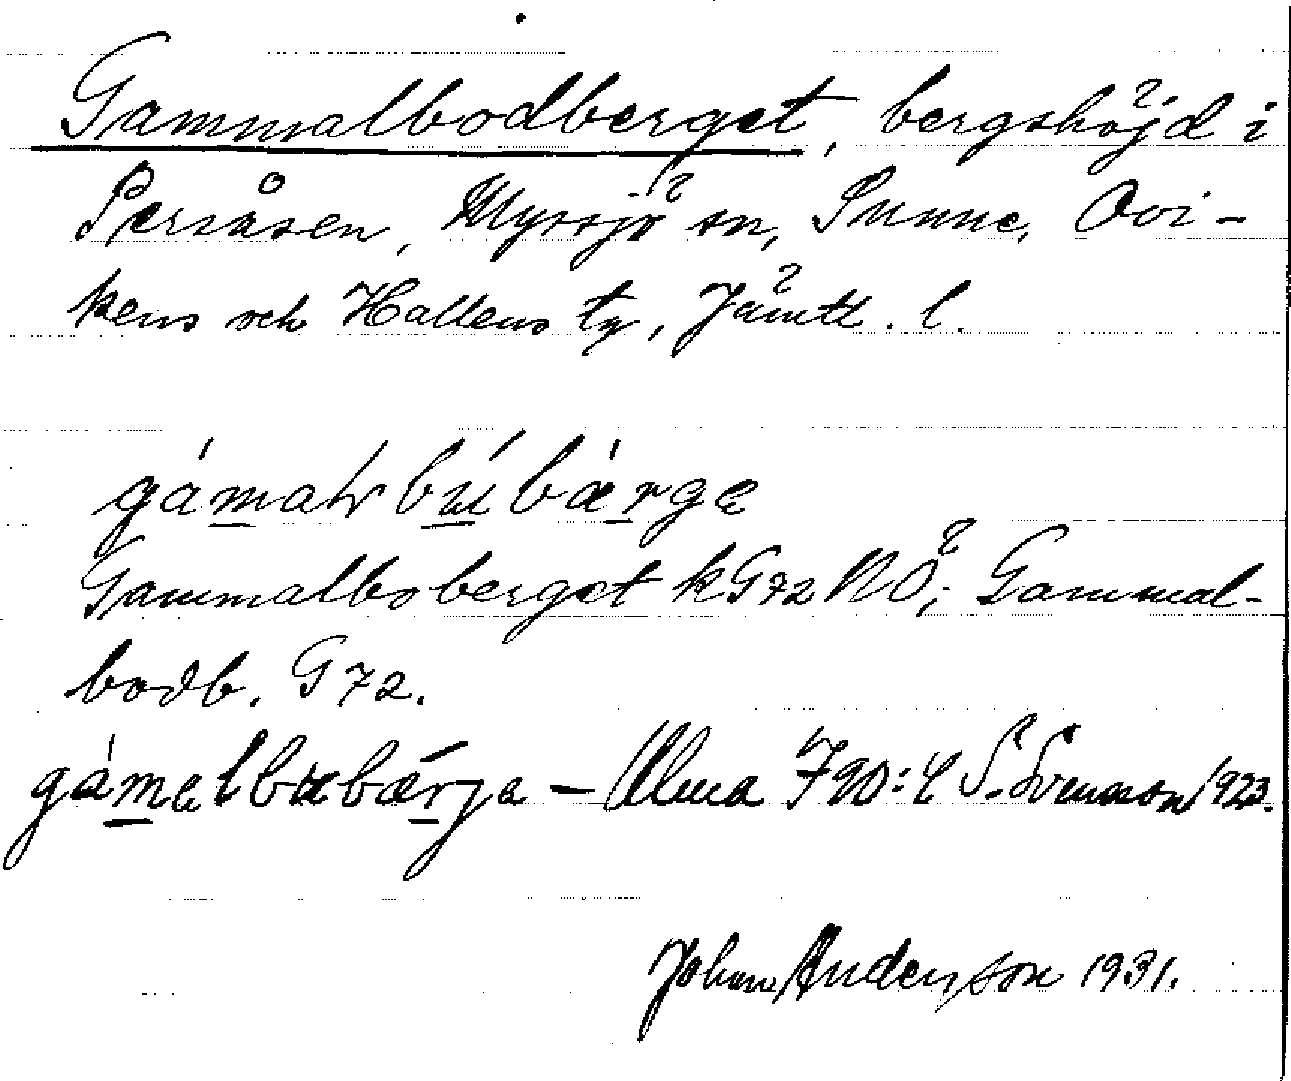 Gammalbodberget, bergshöjd i
Persåsen, Myssjö sn, Sunne, Ovi-
kens och Hallens tg, Jämtl. l.
gámaɫ bu̲bærgɛ
Gammalboberget kG72 NÖ; Gammal-
bodb. G72.
gám̲alb bær̲ja – Ulma 790:4 S. Svensson 1923.
Johan Anderson 1931.